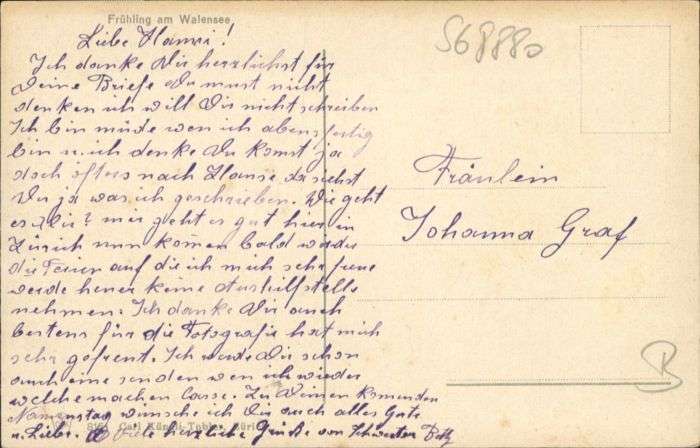 Frühling am Walensee
568880
Liebe Hanni!
Ich danke Dir herzlichst für
Deine Briefe Du must nicht
denken ich will Dir nicht schreiben
Ich bin müde wen ich abens fertig
bin u. ich denke Du komst ja
doch öfters nach Hause da siehst
Du ja was ich geschrieben. Wie geht
es Dir? mir geht es gut hier in
Zürich nun komen bald wieder
die Ferien auf die ich mich sehr freue
werde heuer keine Aushilfstelle
nehmen. Ich danke Dir auch
bestens für die Fotografie hat mich
sehr gefreut. Ich werde Dir schon
auch eine senden wen ich wieder
welche machen lasse. Zu Deinem komenden
Namenstag wünsche ich Dir auch alles Gute
u. Liebe. Viele herzliche Grüße von Schwester Betty
Fräulein
Johanna Graf
B
Carl Künzli-Tobler, Zürich